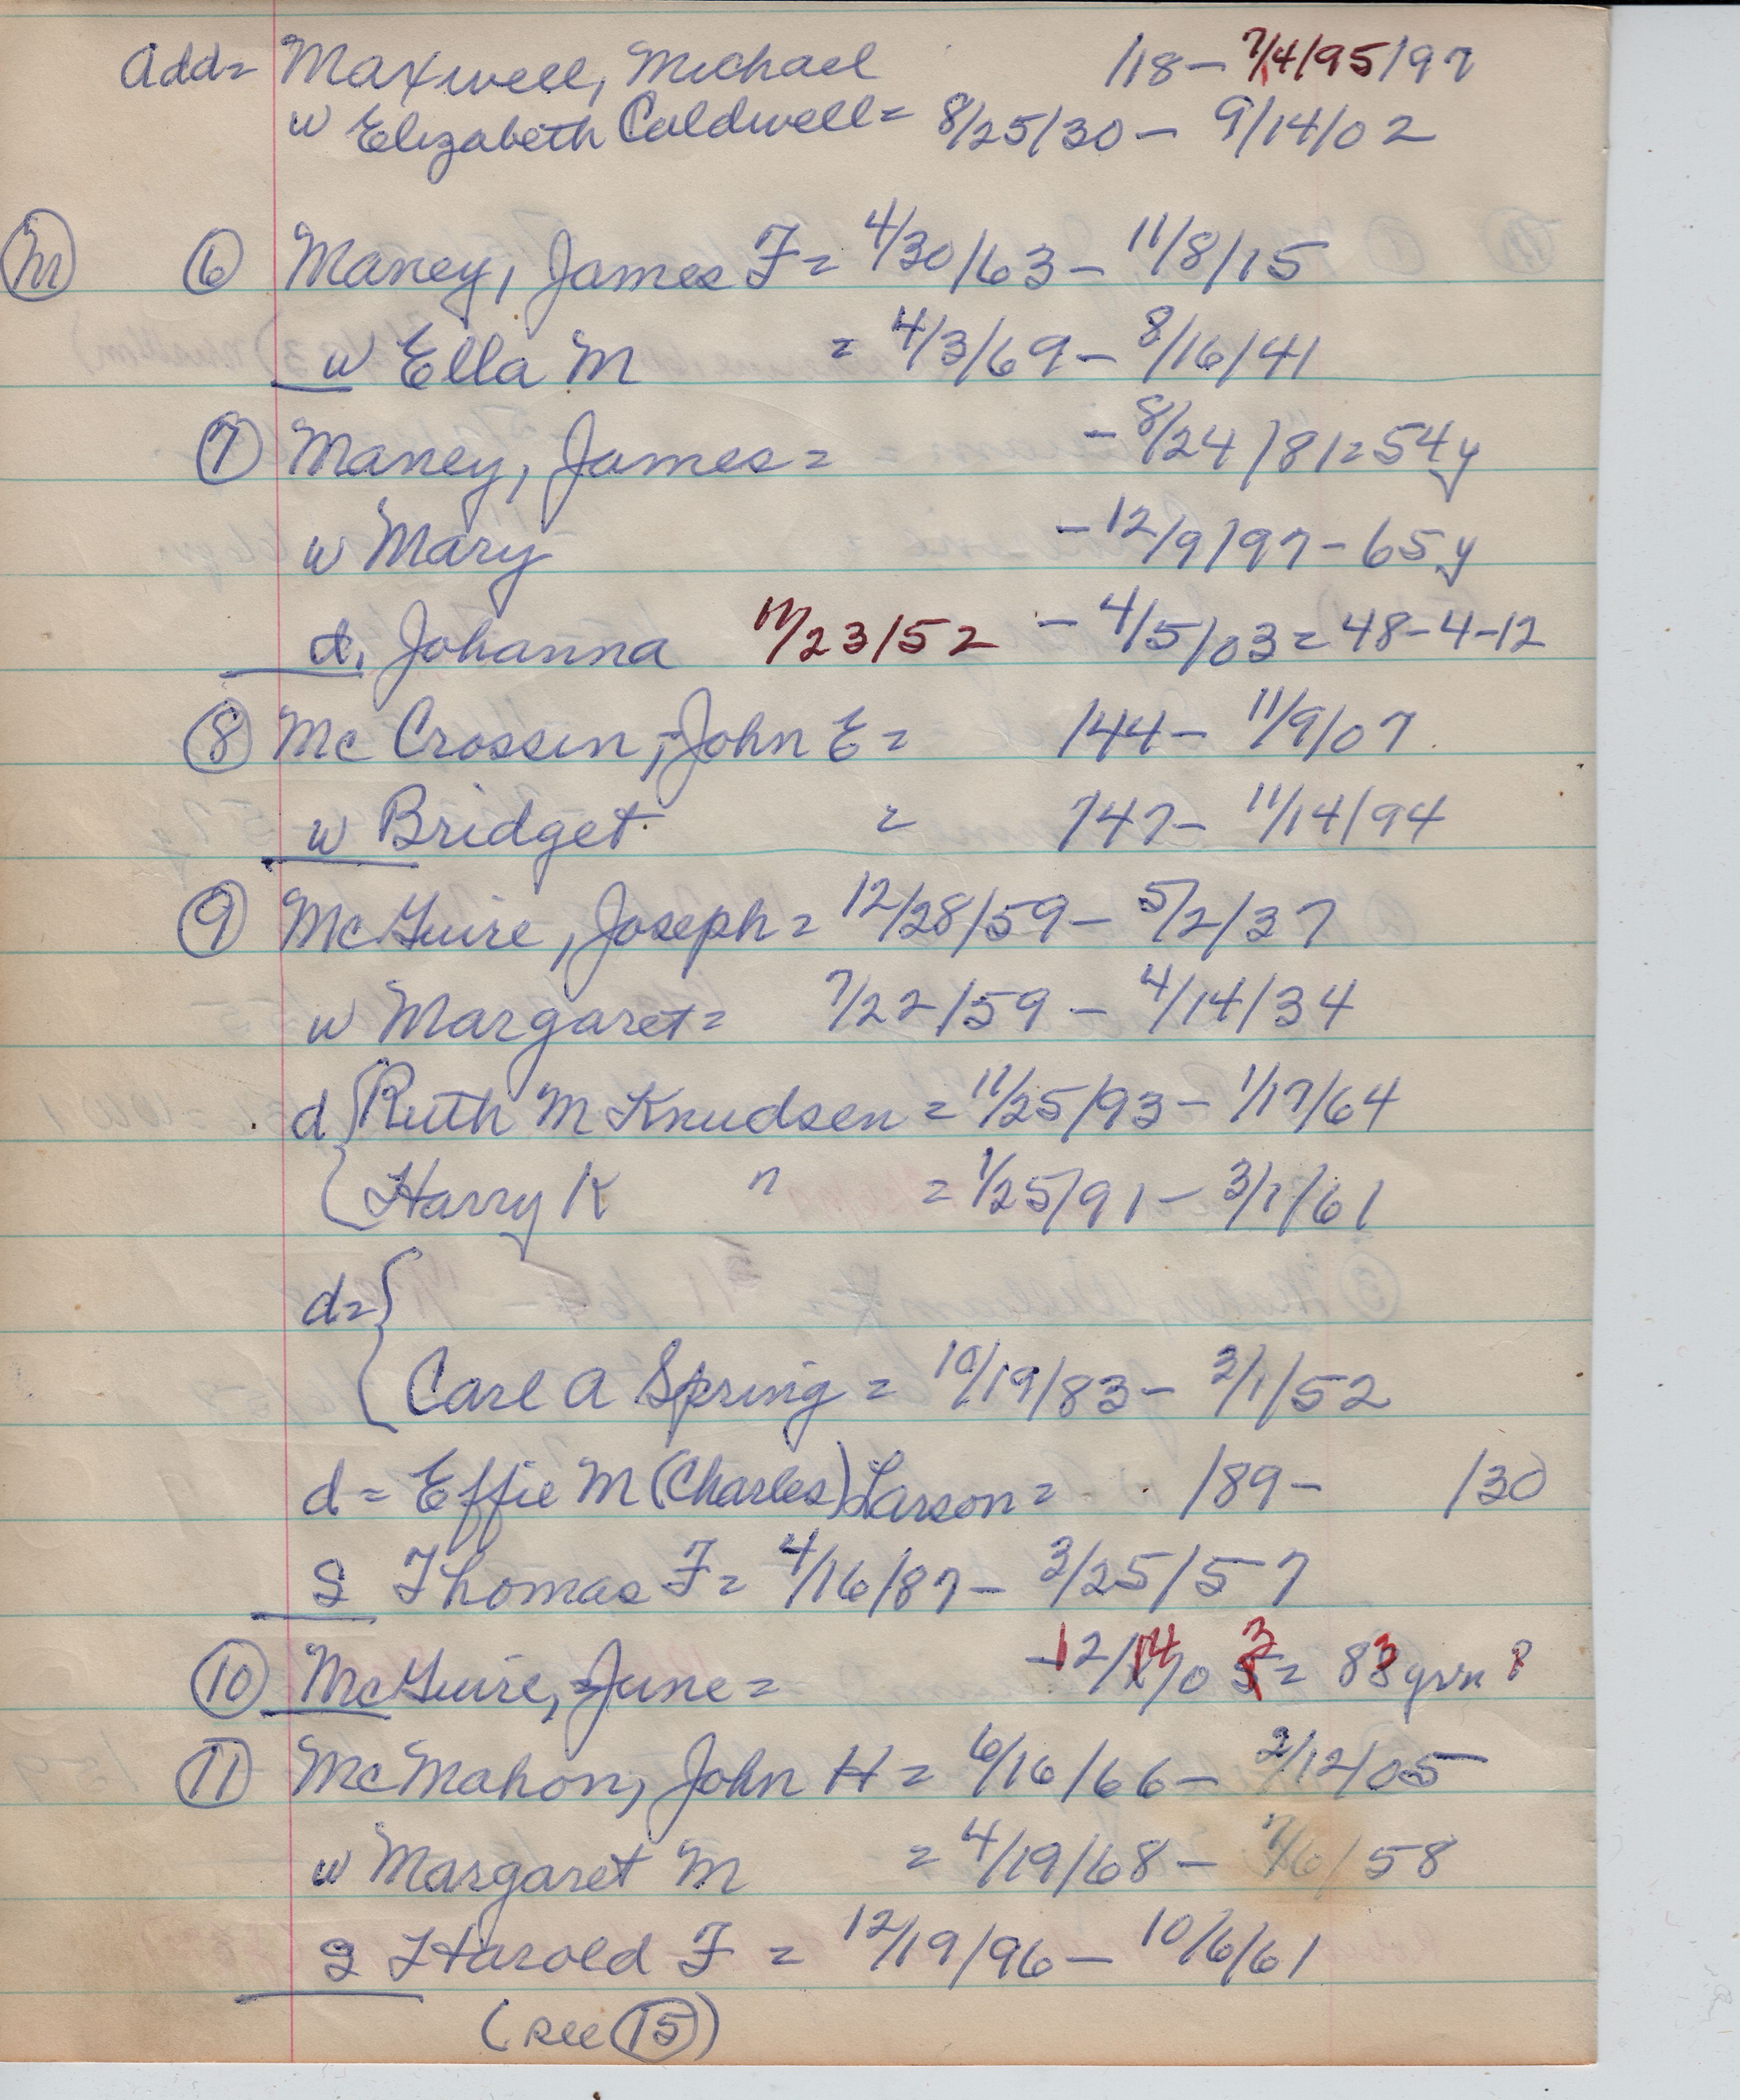 Add= Maxwell, Michael /18 - 7/4/95/97
w Elizabeth Caldwell = 8/25/30 - 9/14/02
M 6 Maney, James F = 4/30/63 - 11/8/15
w Ella M = 4/3/69 - 8/16/41
7 Maney, James = - 8/24/81 = 54y
w Mary - 12/9/97 - 65y
d. Johanna 11/23/52 - 4/5/03 = 48-4-12
8 Mc Crossen, John E = /44 - 11/9/07
w Bridget = /47 - 11/14/94
9 McGuire, Joseph = 12/28/59 - 5/2/37
w Margaret = 7/22/59 - 4/14/34
d { Ruth M Knudsen = 11/25/93 - 1/17/64
{ Harry K " = 1/25/91 - 3/1/61
d= {
{ Carl A Spring = 10/19/83 - 2/1/52
d = Effie M (Charles) Larson = /89 - /30
S Thomas F = 4/16/87 - 3/25/57
10 McGuire, June = - 12/14/03 = 83 yrs ?
11 McMahon, John H = 6/16/66 - 2/12/05
w Margaret M = 4/19/68 - 7/6/58
S Harold F = 12/19/96 - 10/6/61
(see 15)